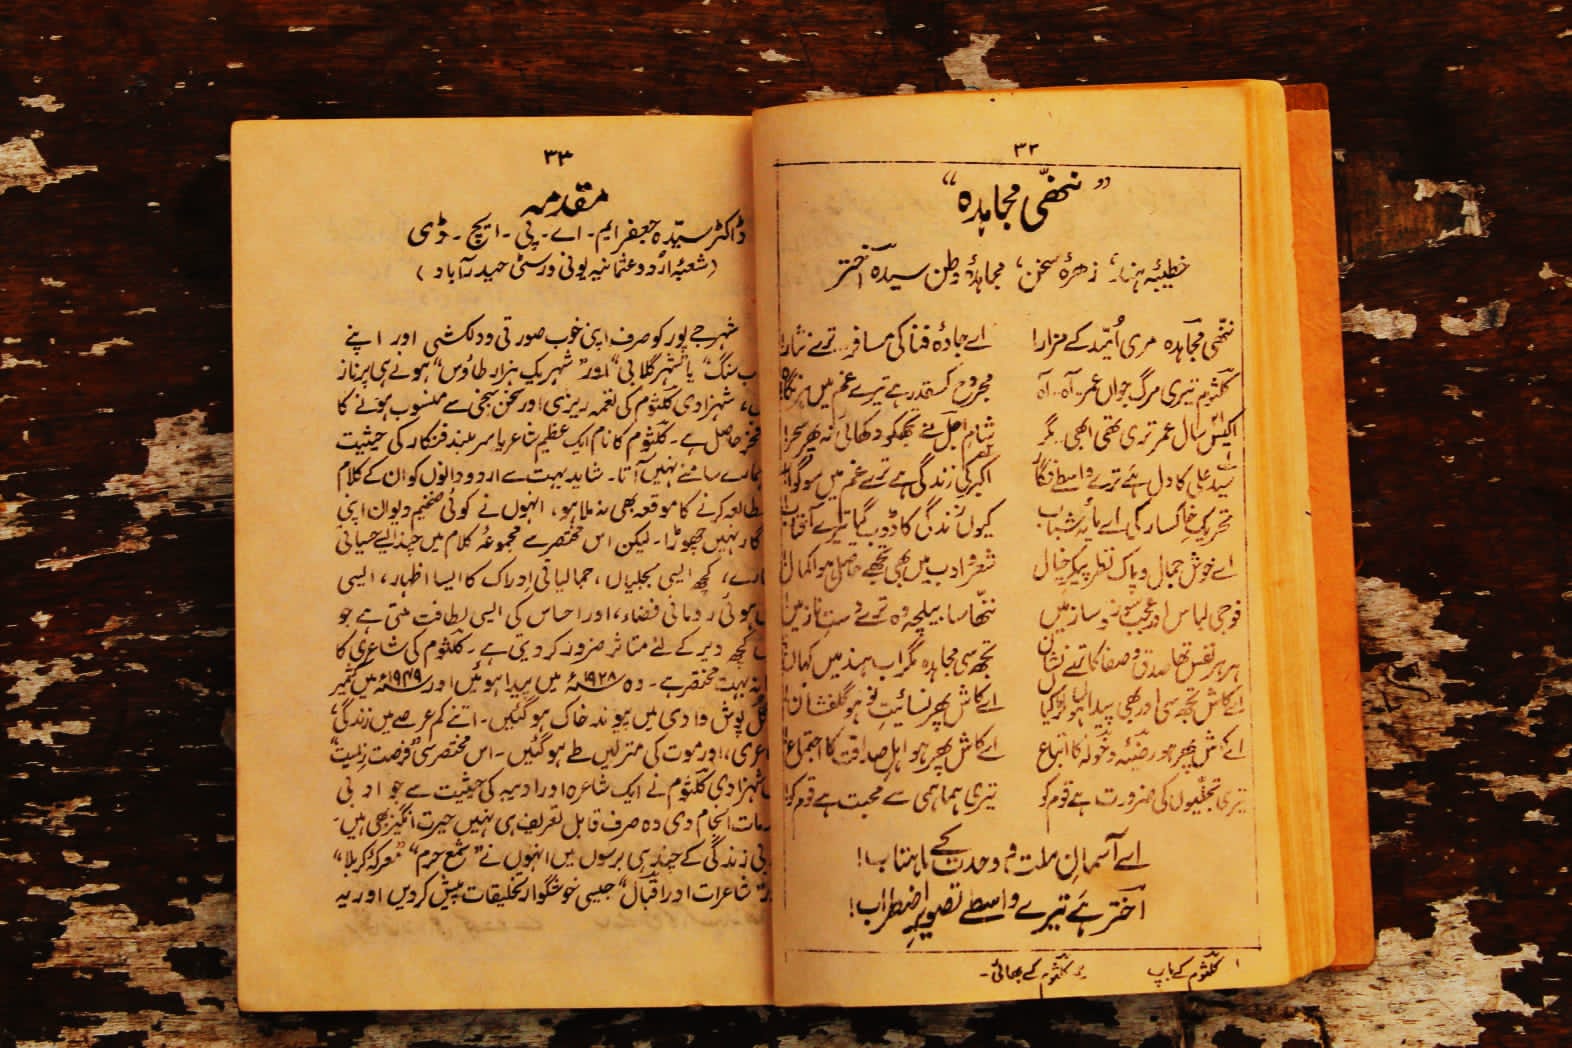 ۳۲
”ننھّی مجاہدہ“
خطیبۂ ہند، زہرۂ سخن، مجاہدۂ وطن سیدہ اخترؔ
ننھّی مجاہدہ مری اُمّید کے مزار! اے جادۂ فنا کی مسافر۔۔ ترے نثار!
کلثوم تیری مرگ جواں عمر۔ آہ۔۔ آہ مجروح کسقدر ہے تیرے غم میں ہر نگاہ!
اکیسؔ سال عمر تری تھی ابھی۔۔ مگر شامِ اجل نے تجھکو دکھائی نہ پھر سحر!
سیّد علی کا دل ہے ترے واسطے فگار اکبر کی زندگی ہے ترے غم میں سوگوار
تحریکِ خاکسار کی اے مایۂ شباب کیوں زندگی کا ڈوب گیا تیرے آفتاب
اے خوش جمال و پاک نظر پیکرِ خیال شعر و ادب میں بھی تجھے حاصل ہوا کمال
فوجی لباس اور عجب سوز و ساز میں ننھّا سا بیلچہ وہ ترے دستِ ناز میں!
ہر ہر نفس تھا صدق و صفا کا ترے نشاں تجھ سی مجاہدہ مگر اب ہند میں کہاں!
اے کاش تجھ سی اور بھی پیدا ہوں لڑکیاں اے کاش پھر نسائیتِ نو ہو گلفشاں!
اے کاش پھر ہو رضیّہ و خولہ کا اتباع اے کاش پھر ہو اہلِ صداقت کا اجتماع!
تیری تجلّیوں کی ضرورت ہے قوم کو تیری ہماہمی سے محبت ہے قوم کو!
اے آسمانِ ملت و وحدت کے ماہتاب!
اخترؔ ہے تیرے واسطے تصویرِ اضطراب!
۱ کلثوم کے باپ ۲ کلثوم کے بھائی۔
۳۳
مقدمہ
ڈاکٹر سیّدہ جعفر ایم۔ اے۔ پی۔ ایچ۔ ڈی
(شعبۂ اُردو عثمانیہ یونی ورسٹی حیدرآباد)
شہر جے پور کو صرف اپنی خوب صورتی و دلکشی اور اپنے
سنگ“ یا ”شہر گلابی“ اور ”شہر یک ہزار طاؤس“ ہونے ہی پر ناز
شہزادی کلثوم کی نغمہ ریزی اور سخن سنجی سے منسوب ہونے کا
فخر حاصل ہے۔ کلثوم کا نام ایک عظیم شاعر یا سر بلند فنکار کی حیثیت
ہمارے سامنے نہیں آتا۔ شاید بہت سے اردو دانوں کو ان کے کلام
مطالعہ کرنے کا موقعہ بھی نہ ملا ہو، انہوں نے کوئی ضخیم دیوان اپنی
نہیں چھوڑا۔ لیکن اس مختصر سے مجموعۂ کلام میں چند ایسے حیاتی
کچھ ایسی بجلیاں، جمالیاتی اِدراک کا ایسا اظہار، ایسی
ہوئی رومانی فضاء، اور احساس کی ایسی لطافت ملتی ہے جو
کچھ دیر کے لئے متاثر ضرور کر دیتی ہے۔ کلثوم کی شاعری کا
بہت مختصر ہے۔ وہ ۱۹۲۸ء میں پیدا ہوئیں اور ۱۹۴۹ء میں کشمیر
گل پوش وادی میں پیوند خاک ہو گئیں۔ اتنے کم عرصے میں زندگی،
شاعری، اور موت کی منزلیں طے ہو گئیں۔ اس مختصر سی ”فرصت زلیست“
شہزادی کلثوم نے ایک شاعرہ اور ادیبہ کی حیثیت سے جو ادبی
خدمات انجام دی وہ صرف قابل تعریف ہی نہیں حیرت انگیز بھی ہیں۔
زندگی کے چند ہی برسوں میں انہوں نے ”شمع حرم“ ”معرکۂ کربلا“
شاعرات اور اقبال“ جیسی خوشگوار تخلیقات پیش کر دیں اور یہ